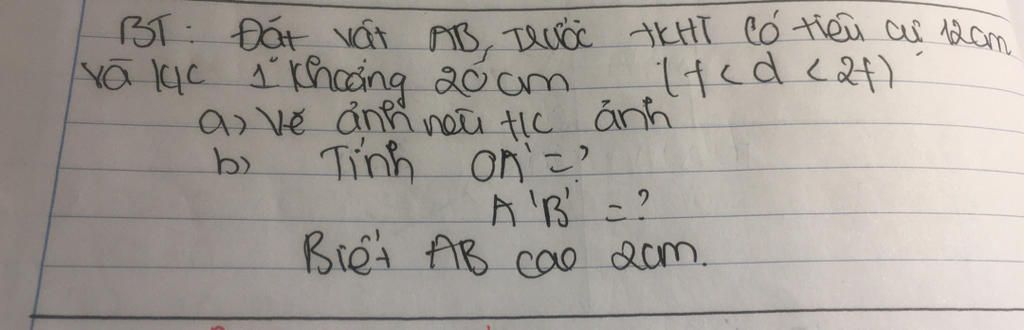 BT: Đặt vật AB, trước TKHT có tiêu cự 12cm
và lực 1 khoảng 20cm (f < d < 2f)
a) Vẽ ảnh nêu t/c ảnh
b) Tính OA' = ?
A'B' = ?
Biết AB cao 2cm.